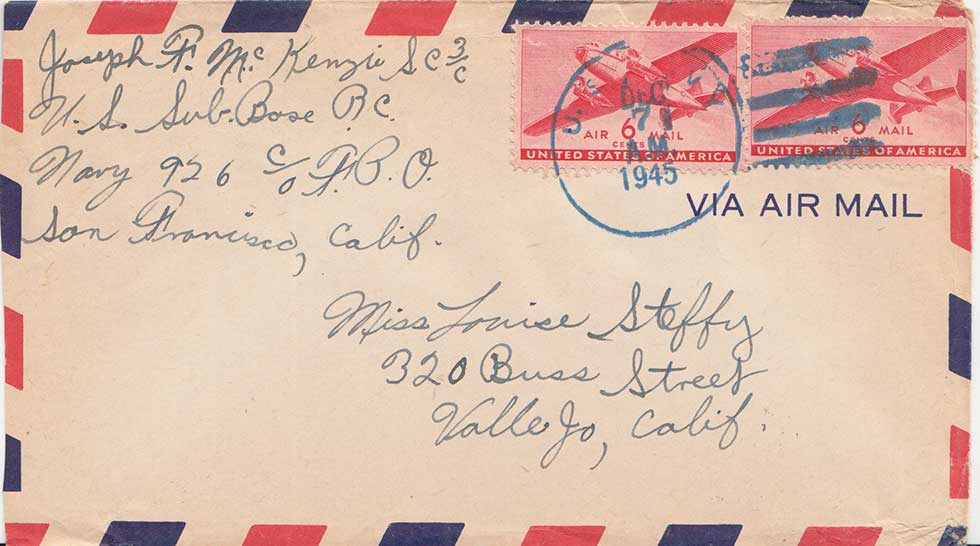 Joseph F. McKenzie SC 3/c
U.S. Sub. Base P.C.
Navy 926 c/o F.P.O.
San Francisco, Calif.
AIR 6 MAIL
CENTS
UNITED STATES OF AMERICA
AIR 6 MAIL
CENTS
UNITED STATES OF AMERICA
U.S.
DEC
7
A.M.
1945
VIA AIR MAIL
Miss Louise Steffy
320 Buss Street
Vallejo, Calif.